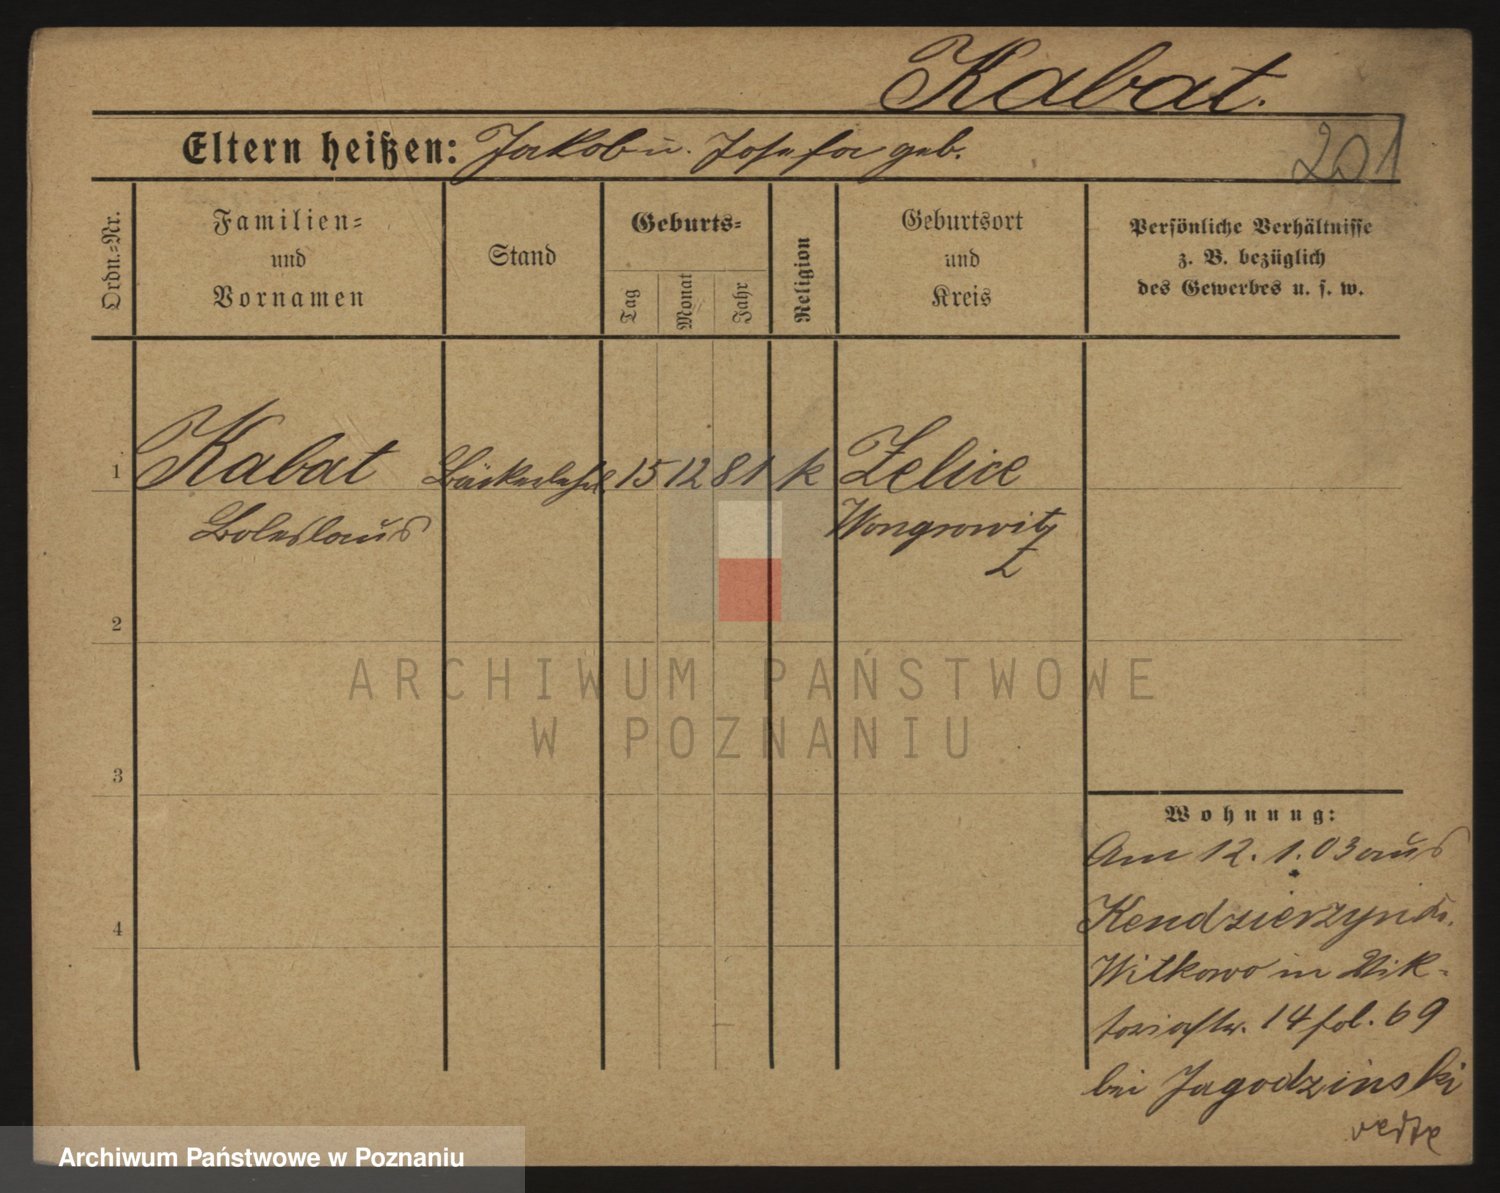 Kabat.
201
Eltern heißen: Jakob u. Josefa geb.
Ordn.-Nr.
Familien-
und
Vornamen
Stand
Geburts-
Tag
Monat
Jahr
Religion
Geburtsort
und
Kreis
Persönliche Verhältnisse
z. B. bezüglich
des Gewerbes u. s. w.
1 Kabat 15 12 81 k Zelice
Boleslaus Wongrowitz
2
3
4
Wohnung:
Am 12. 1. 03 aus
Witkowo in Vik-
toriastr. 14 fol. 69
bei Jagodzinski
ARCHIWUM PAŃSTWOWE
W POZNANIU
Archiwum Państwowe w Poznaniu